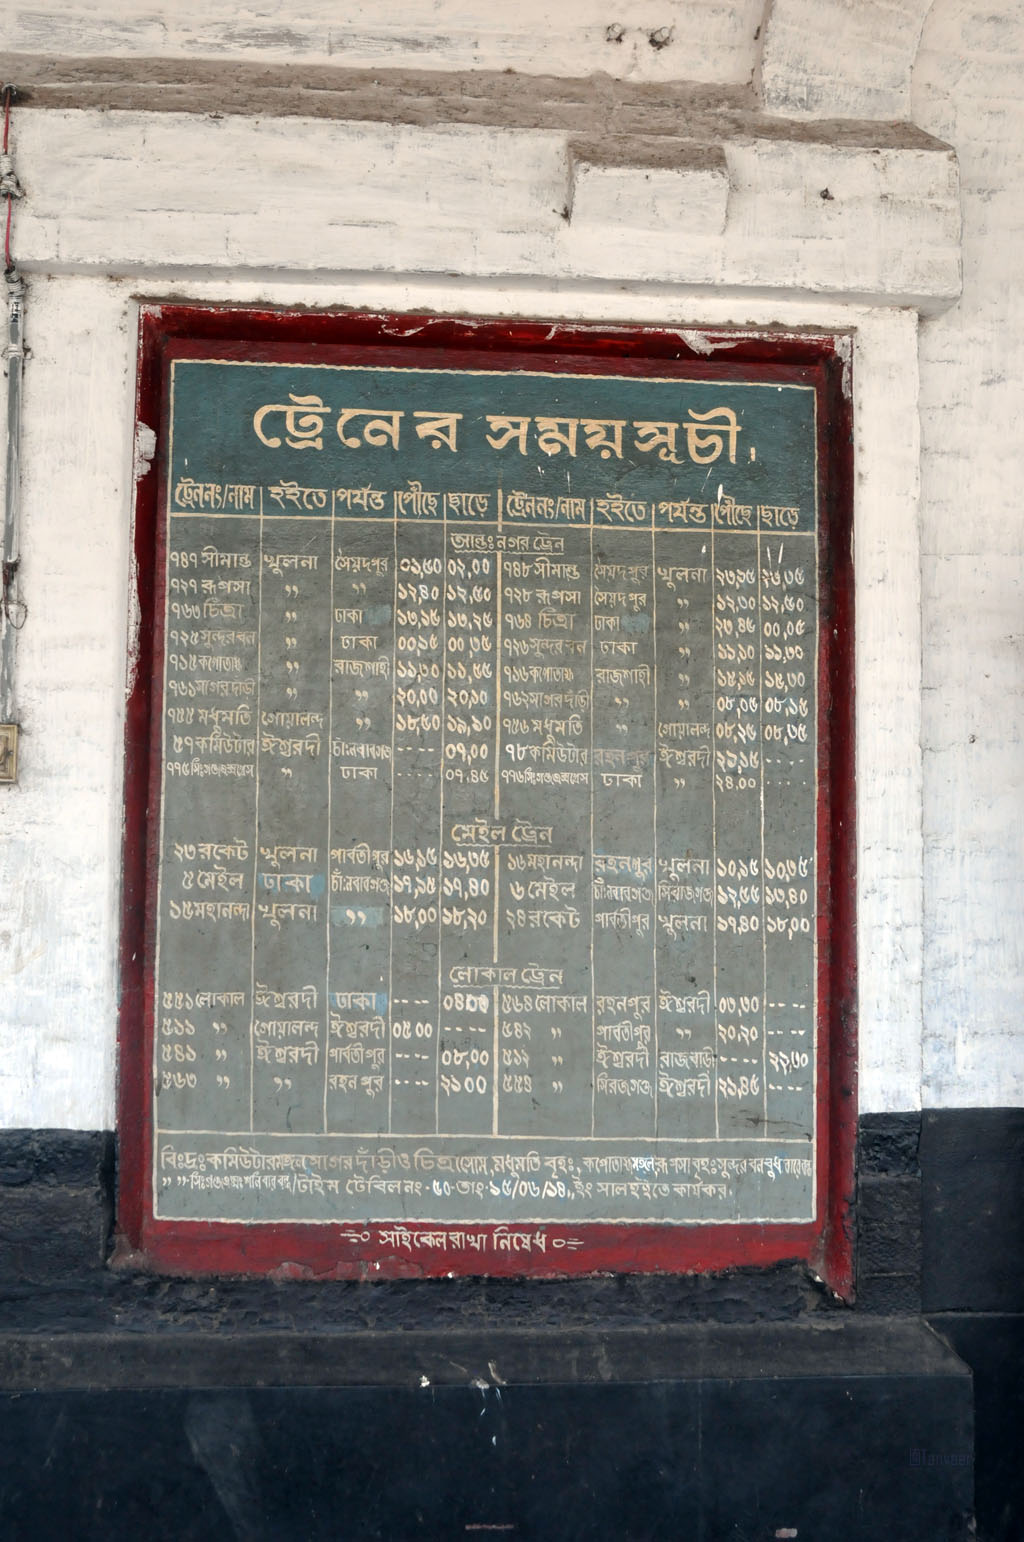 ট্রেনের সময়সূচী।
ট্রেননং/নাম হইতে পর্যন্ত পৌছে ছাড়ে ট্রেননং/নাম হইতে পর্যন্ত পৌছে ছাড়ে
আন্তঃনগর ট্রেন
৭৪৭ সীমান্ত খুলনা সৈয়দপুর ০১,৫০ ০২,০০ ৭৪৮ সীমান্ত সৈয়দপুর খুলনা ২৩,১৫ ২৩,৩৫
৭২৭ রূপসা ,, ,, ১২,৪০ ১২,৫০ ৭২৮ রূপসা সৈয়দপুর ,, ১২,৩০ ১২,৫০
৭৬৩ চিত্রা ,, ঢাকা ১৩,১৫ ১৩,২৫ ৭৬৪ চিত্রা ঢাকা ,, ২৩,৪৫ ০০,০৫
৭২৫ সুন্দরবন ,, ঢাকা ০০,১৫ ০০,৩৫ ৭২৬ সুন্দরবন ঢাকা ,, ১১,১০ ১১,৩০
৭১৫ কপোতাক্ষ ,, রাজশাহী ১১,৩০ ১১,৫৫ ৭১৬ কপোতাক্ষ রাজশাহী ,, ১৫,১৫ ১৫,৩০
৭৬১ সাগরদাড়ী ,, ,, ২০,০০ ২০,১০ ৭৬২ সাগরদাঁড়ি ,, ,, ০৮,০৫ ০৮,১৫
৭৫৫ মধুমতি গোয়ালন্দ ,, ১৮,৫০ ১৯,১০ ৭৫৬ মধুমতি ,, গোয়ালন্দ ০৮,২৫ ০৮,৩৫
৫৭ কমিউটার ঈশ্বরদী চাঃনবাবগঞ্জ ---- ০৭,০০ ৭৮ কমিউটার রহনপুর ঈশ্বরদী ২১,১৫ ----
৭৭৫ সিঃগঞ্জএক্সপ্রেস ,, ঢাকা ---- ০৭,৪৫ ৭৭৬ সিঃগঞ্জএক্সপ্রেস ঢাকা ,, ২৪,০০ ----
মেইল ট্রেন
২৩ রকেট খুলনা পার্বতীপুর ১৬,১৫ ১৬,৩৫ ১৬ মহানন্দা রহনপুর খুলনা ১০,১৫ ১০,৩৫
৫ মেইল ঢাকা চাঁঃনবাবগঞ্জ ১৭,১৫ ১৭,৪০ ৬ মেইল চাঁঃনবাবগঞ্জ সিরাজগঞ্জ ১২,৫৫ ১৩,৪০
১৫ মহানন্দা খুলনা ,, ১৮,০০ ১৮,২০ ২৪ রকেট পার্বতীপুর খুলনা ১৭,৪০ ১৮,০০
লোকাল ট্রেন
৫৫১ লোকাল ঈশ্বরদী ঢাকা ---- ৫৬৪ লোকাল রহনপুর ঈশ্বরদী ০৩,৩০ ----
৫১১ ,, গোয়ালন্দ ঈশ্বরদী ০৫০০ ---- ৫৪২ ,, পার্বতীপুর ,, ২০,২০ ----
৫৪১ ,, ঈশ্বরদী পার্বতীপুর ---- ০৮,০০ ৫১২ ,, ঈশ্বরদী রাজবাড়ী ---- ২২,৩০
৫৬৩ ,, ,, রহনপুর ---- ২১০০ ৫৫৪ ,, সিরাজগঞ্জ ঈশ্বরদী ২১,৪৫ ----
বিঃদ্রঃ কমিউটার মঙ্গল, সাগর দাঁড়ী ও চিত্রা সোম, মধুমতি বৃহঃ, কপোতাক্ষ মঙ্গল, রূপসা বৃহঃ সুন্দরবন বুধ বারে বন্ধ
,, ,, সিঃগঞ্জএক্সঃ শনিবার বন্ধ/টাইম টেবিল নং-৫০-তাং-১৫/০৬/১৪,, ইং সাল হইতে কার্যকর।
সাইকেল রাখা নিষেধ